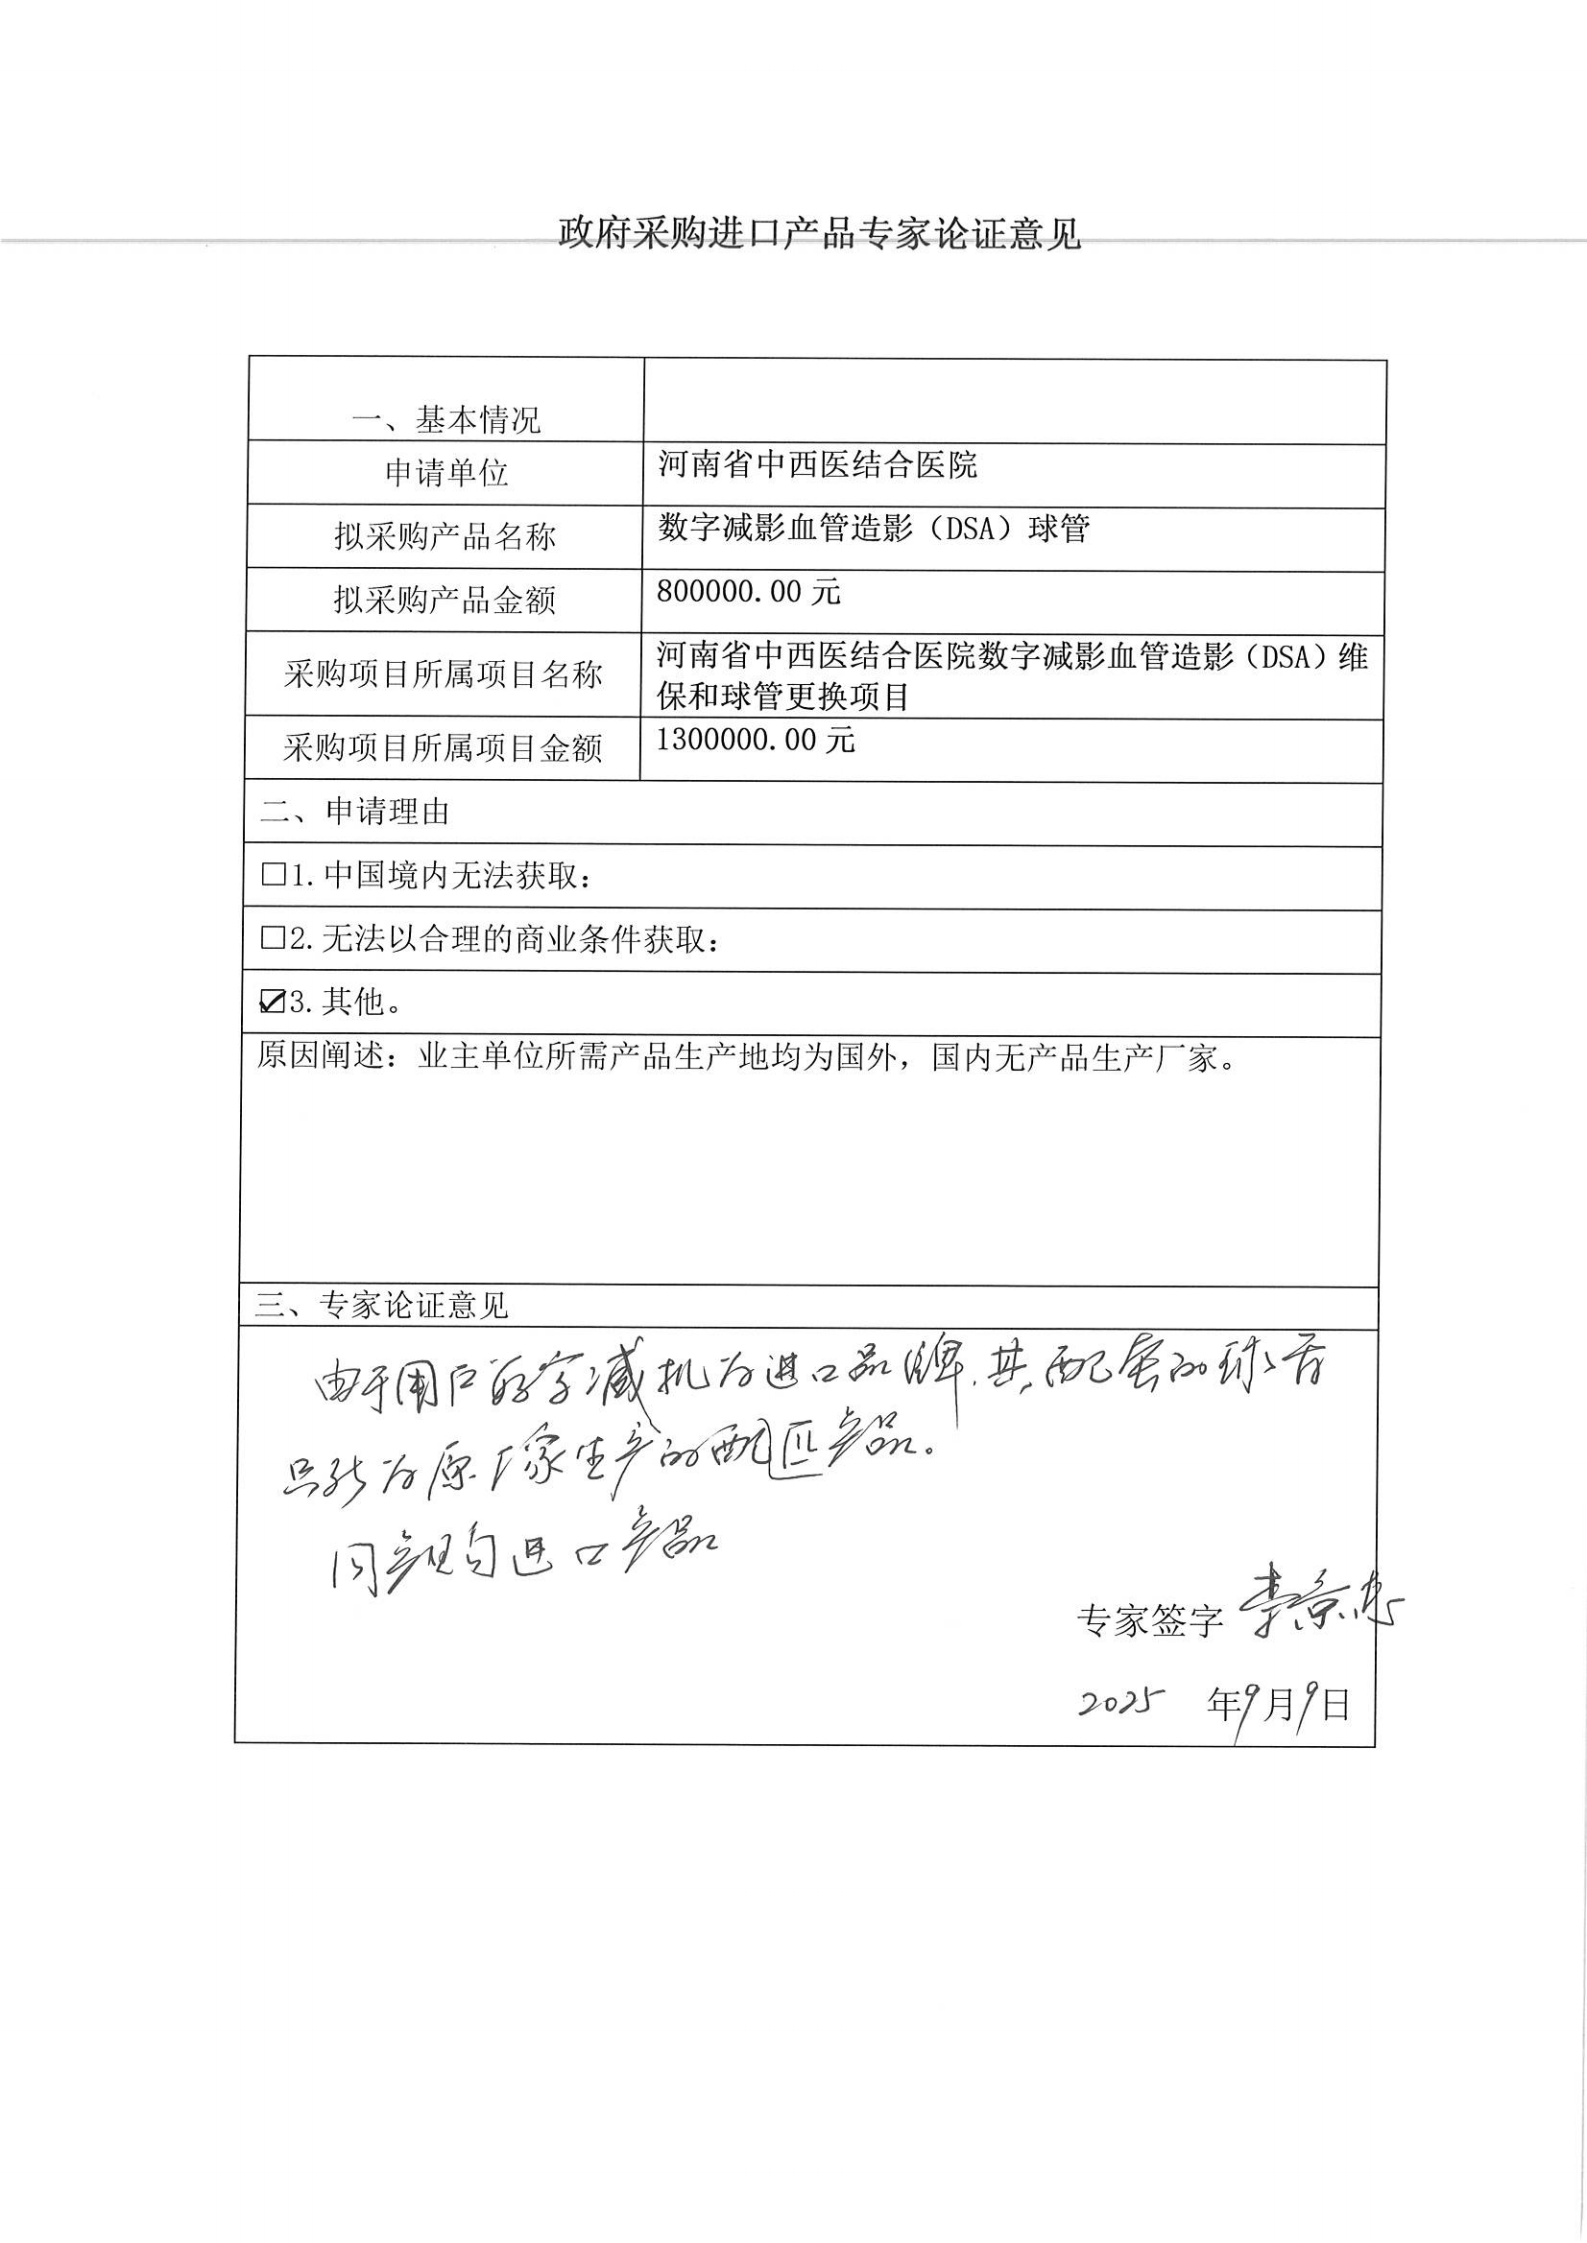 政府采购进口产品专家论证意见
一、基本情况
申请单位 河南省中西医结合医院
拟采购产品名称 数字减影血管造影（DSA）球管
拟采购产品金额 800000.00 元
采购项目所属项目名称 河南省中西医结合医院数字减影血管造影（DSA）维
保和球管更换项目
采购项目所属项目金额 1300000.00 元
二、申请理由
□1.中国境内无法获取：
□2.无法以合理的商业条件获取：
☑3.其他。
原因阐述：业主单位所需产品生产地均为国外，国内无产品生产厂家。
三、专家论证意见
由于用户数字减机为进口品牌.其配套的球管
只能为原厂家生产的配匹产品。
同意购进口产品
专家签字 李景
2025 年9月9日